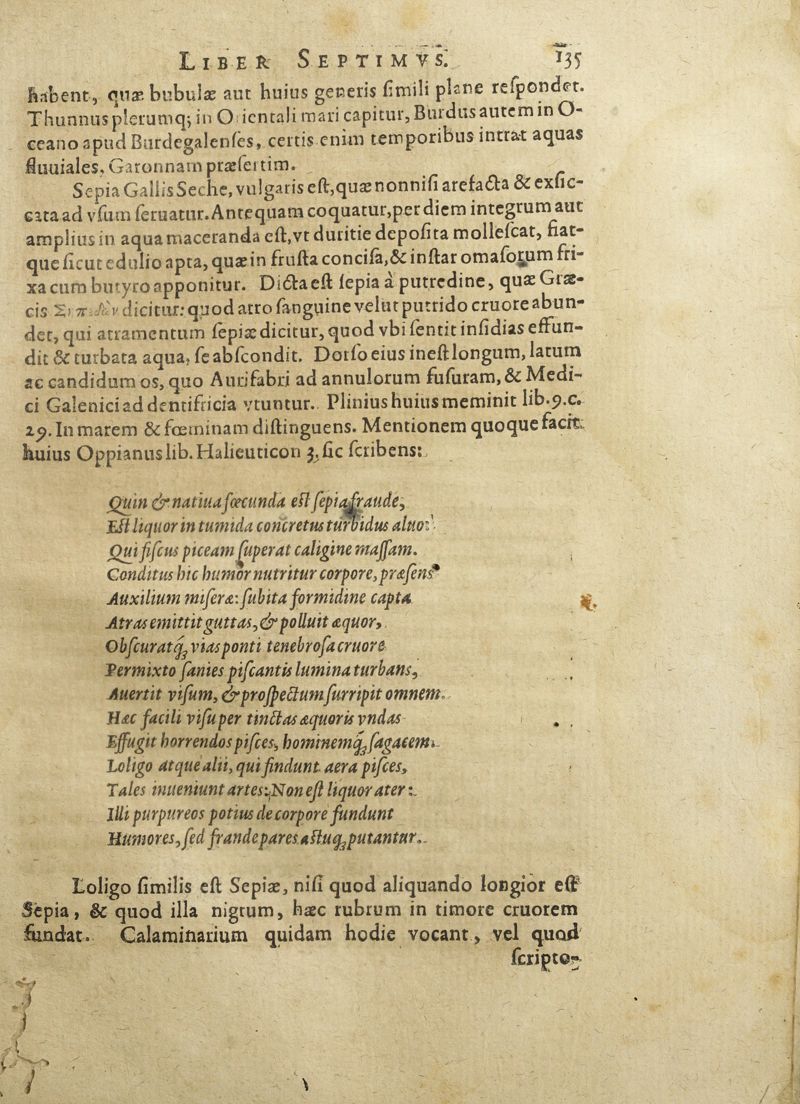 LIBER SEPTIMVS. 135
habent, quæ bubulæ aut huius generis ſimili plane reſpondet.
Thunnus plerumq; in Orientali mari capitur, Burdus autem in O-
ceano apud Burdegalenſes, certis enim temporibus intrat aquas
fluuiales, Garonnam præſertim.
Sepia Gallis Seche, vulgaris eſt, quæ nonniſi arefacta & exſic-
cata ad vſum ſeruatur. Antequam coquatur, per diem integrum aut
amplius in aqua maceranda eſt, vt duritie depoſita molleſcat, fiat-
que ſicut edulio apta, quæ in fruſta conciſa, & inſtar omaſorum fri-
xa cum butyro apponitur. Dicta eſt ſepia à putredine, quæ Græ-
cis dicitur: quod atro ſanguine velut putrido cruore abun-
det, qui atramentum ſepiæ dicitur, quod vbi ſentit inſidias effun-
dit & turbata aqua, ſe abſcondit. Dorſo eius ineſt longum, latum
ac candidum os, quo Aurifabri ad annulorum fuſuram, & Medi-
ci Galenici ad dentifricia vtuntur. Plinius huius meminit lib. 9. c.
29. In marem & fœminam diſtinguens. Mentionem quoque facit
huius Oppianus lib. Halieuticon 3, ſic ſcribens:
Quin & natiua fœcunda eſt ſepia fraude,
Eſt liquor in tumida concretus turbidus aluo:
Qui fiſcus piceam ſuperat caligine maſſam.
Conditus hic humor nutritur corpore, præſens
Auxilium miſeræ: ſubita formidine capta
Atras emittit guttas, & polluit æquor,
Obſcuratq; vias ponti tenebroſa cruore
Permixto ſanies piſcantis lumina turbans,
Auertit viſum, & proſpectum ſurripit omnem.
Hæc facili viſu per tinctas æquoris vndas
Effugit horrendos piſces, hominemq; ſagacem.
Loligo atque alii, qui findunt aera piſces,
Tales inueniunt artes: Non eſt liquor ater:
Illi purpureos potius de corpore fundunt
Humores, ſed frande pares aſtuq; putantur.
Loligo ſimilis eſt Sepiæ, niſi quod aliquando longior eſt
Sepia, & quod illa nigrum, hæc rubrum in timore cruorem
fundat. Calaminarium quidam hodie vocant, vel quod
ſcripto-